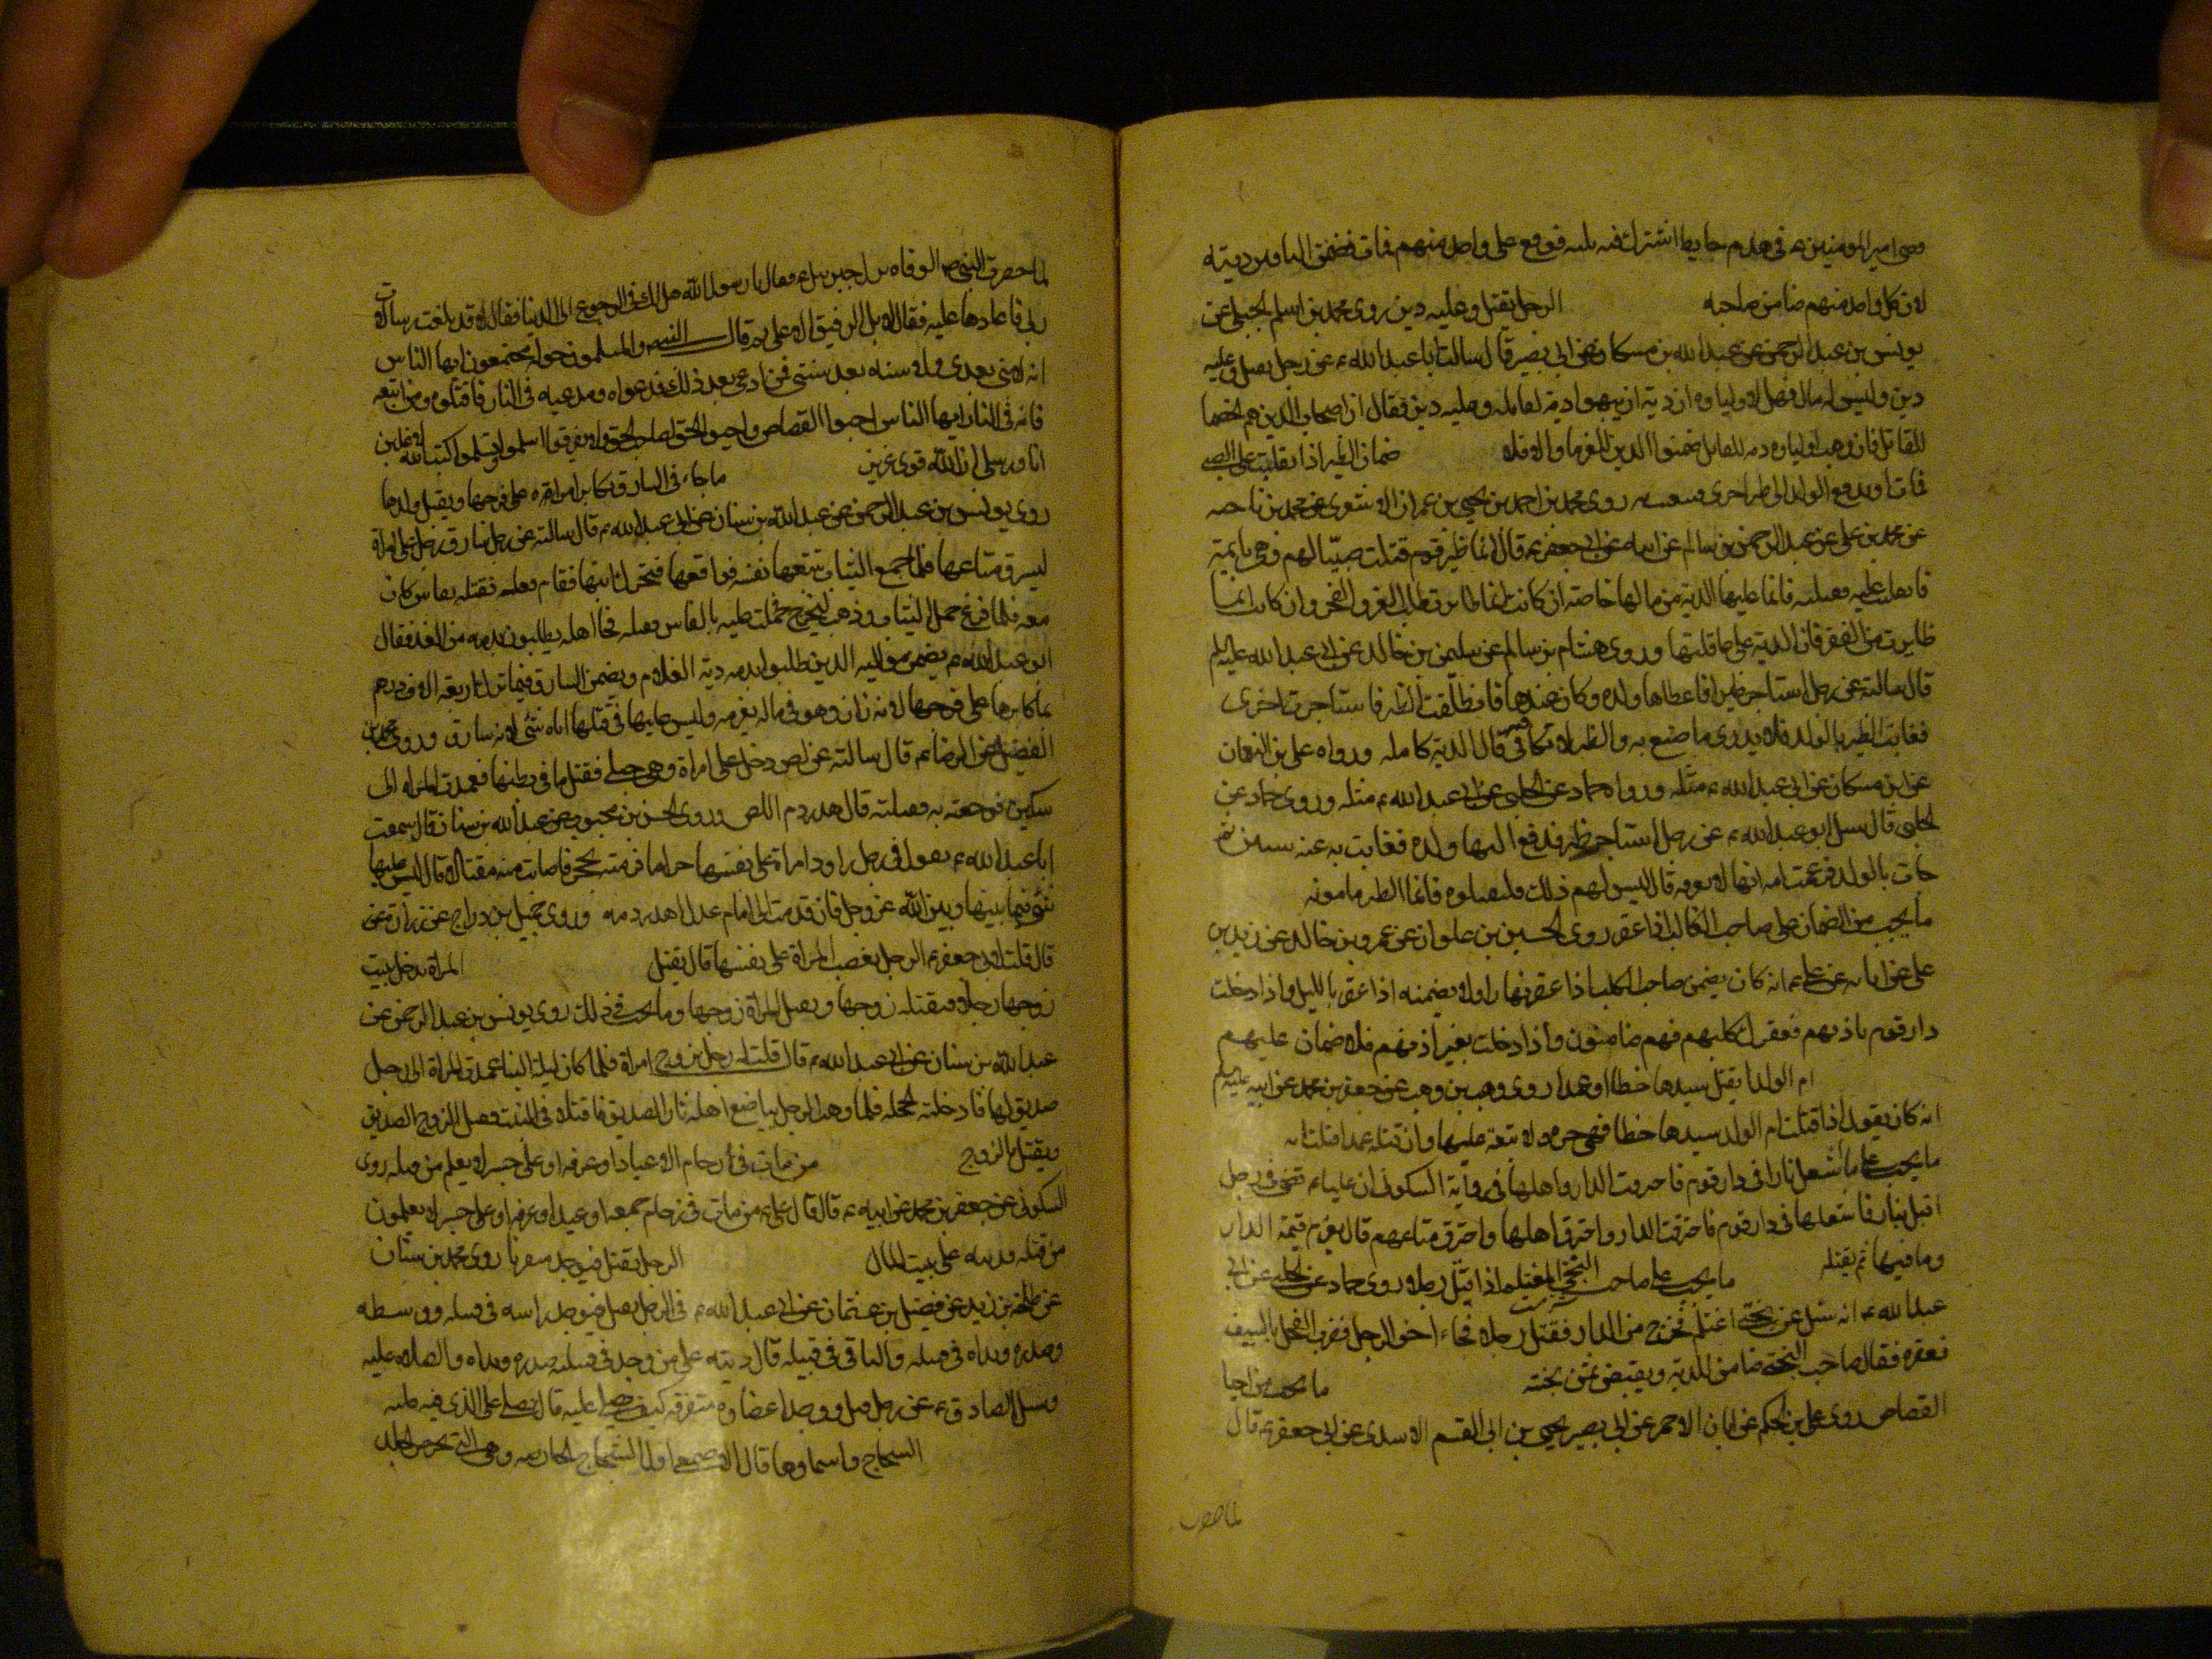 امير المومنين ع في هدم حايط اشترك فيه ثلثه فوقع على واحد منهم فمات فضمن الباقين ديته
لان كل واحد منهم ضامن صاحبه الرجل يقتل وعليه دين روى محمد بن اسلم الجبلي عن
يونس بن عبد الرحمن عن عبد الله بن مسكان عن ابي بصير قال سالت ابا عبد الله ع عن رجل يقتل وعليه
دين وليس له مال فهل لاوليائه ان يهبوا دمه لقاتله وعليه دين فقال ان اصحاب الدين هم الخصماء
للقاتل فان وهب اولياوه دمه للقاتل ضمنوا الدين للغرماء والا فلا ضمان الظير اذا انقلبت على الصبي
فمات او تدفع الولد الى ظير اخرى روى محمد بن احمد بن يحيى بن عمران الاشعري عن محمد بن ناحيه
عن محمد بن علي عن عبد الرحمن بن سالم عن ابيه عن ابي جعفر ع قال ايما ظير قوم قتلت صبيا لهم وهي نايمة
فانقلبت عليه فقتلته فانما عليها الدية من مالها خاصة ان كانت انما ظايرت طلب العز والفخر وان كانت انما
ظايرت من الفقر فان الدية على عاقلتها وروى هشام بن سالم عن سليمن بن خالد عن ابي عبد الله عليه السلم
قال سالته عن رجل استاجر ظيرا فاعطاها ولده وكان عندها فانطلقت الظير فاستاجرت اخرى
فغابت الظير بالولد فلا يدرى ما صنع به والظير لا تكافى قال الدية كاملة ورواه علي بن النعمان
عن ابن مسكان عن ابي عبد الله ع مثله ورواه حماد عن الحلبي عن ابي عبد الله ع مثله وروى حماد عن
الحلبي قال سئل ابو عبد الله ع عن رجل استاجر ظيرا فدفع اليها ولده فغابت به عنه سنين ثم
جات بالولد فزعمت امه انها لا تعرفه قال ليس لهم ذلك فليقبلوه فانما الظير مامونه
ما يجب من الضمان على صاحب الكلب اذا عقر روى الحسين بن علوان عن عمرو بن خالد عن زيد بن
علي عن ابايه عن علي ع انه كان يضمن صاحب الكلب اذا عقر نهارا ولا يضمنه اذا عقر بالليل واذا دخلت
دار قوم باذنهم فعقرك كلبهم فهم ضامنون واذا دخلت بغير اذنهم فلا ضمان عليهم
ام الولد تقتل سيدها خطا او عمدا روى وهب بن وهب عن جعفر بن محمد عن ابيه عليه السلم
انه كان يقول اذا قتلت ام الولد سيدها خطا فهي حره ولا تبعة عليها وان قتلته عمدا قتلت به
ما يجب على من اشعل نارا في دار قوم فاحترقت الدار واهلها في رواية السكوني ان عليا ع قضى في رجل
اقبل بنار فاشعلها في دار قوم فاحترقت الدار واحترق اهلها واحترق متاعهم قال يغرم قيمة الدار
وما فيها ثم يقتل ما يجب على صاحب البختي المغتلم اذا قتل رجلا روى حماد عن الحلبي عن ابي
عبد الله ع انه سئل عن بختي اغتلم فخرج من الدار فقتل رجلا فجاء اخو الرجل فضرب الفحل بالسيف
فعقره فقال صاحب البختي ضامن للدية ويقتص ثمن بختيه ما يجب من احيا
القصاص روى علي بن الحكم عن ابان الاحمر عن ابي بصير يحيى بن ابي القسم الاسدي عن ابي جعفر ع قال
لما حضرت
لما حضرت النبي ص الوفاه نزل جبريل ع فقال يا رسول الله هل لك في الرجوع الى الدنيا فقال لا قد بلغت رسالات
ربي فاعادها عليه فقال لا بل الرفيق الاعلى ثم قال النبي والمسلمون حوله مجتمعون ايها الناس
انه لا نبي بعدي ولا سنه بعد سنتي فمن ادعى بعد ذلك فدعواه ومدعيه في النار فاقتلوه ومن اتبعه
فانه في النار ايها الناس احيوا القصاص واحيوا الحق لصاحب الحق ولا تفرقوا اسلموا وسلموا كتب الله لاغلبن
انا ورسلي ان الله قوي عزيز ما جاء في السارق يكابر امراة على فرجها ويقتل ولدها
روى يونس بن عبد الرحمن عن عبد الله بن سنان عن ابي عبد الله ع قال سالته عن رجل سارق دخل على امراة
ليسرق متاعها فلما جمع الثياب تبعتها نفسه فواقعها فتحرك ابنها فقام فقتله بفاس كان
معه فلما فرغ حمل الثياب وذهب ليخرج حملت عليه بالفاس فقتلته فجا اهله يطلبون بدمه من الغد فقال
ابو عبد الله ع يضمن مواليه الذين طلبوا بدمه دية الغلام ويضمن السارق فيما ترك اربعة الاف درهم
بما كابرها على فرجها لانه زان وهو في ماله يغرمه وليس عليها في قتلها اياه شي لانه سارق وروى محمد بن
الفضيل عن الرضا ع قال سالته عن لص دخل على امراة وهي حبلى فقتل ما في بطنها فعمدت المراه الى
سكين فوجته به فقتلته قال هدر دم اللص وروى الحسن بن محبوب عن عبد الله بن سنان قال سمعت
ابا عبد الله ع يقول في رجل راود امراة على نفسها حراما فرمته بحجر فاصابت منه مقتلا قال ليس عليها
شي فيما بينها وبين الله عز وجل فان قدمت الى امام عدل اهدر دمه وروى جميل بن دراج عن زرارة عن
قال قلت لابي جعفر ع الرجل يغصب المراة على نفسها قال يقتل المراة تدخل بيت
زوجها رجلا فيقتله زوجها وتقتل المراة زوجها وما يجب في ذلك روى يونس بن عبد الرحمن عن
عبد الله بن سنان عن ابي عبد الله ع قال قلت له رجل تزوج امراة فلما كان ليلة البنا عمدت المراة الى رجل
صديق لها فادخلته الحجلة فلما ذهب الرجل يباضع اهله ثار الصديق فاقتتلا في البيت فقتل الزوج الصديق
ويقتل بالزوج من مات في زحام الاعياد او عرفه او على جسر لا يعلم من قتله روى
السكوني عن جعفر بن محمد عن ابيه ع قال قال علي ع من مات في زحام جمعه او عيد او عرفه او على جسر لا يعلمون
من قتله فديته على بيت المال الرجل يقتل فيوجد متفرقا روى محمد بن سنان
عن طلحة بن زيد عن فضيل بن عثمان عن ابي عبد الله ع في الرجل يقتل فيوجد راسه في قبيله ووسطه
وصدره ويداه في قبيله والباقي في قبيله قال ديته على من وجد في قبيلته صدره ويداه والصلاه عليه
وسئل الصادق ع عن رجل قتل ووجد اعضاوه متفرقه كيف يصلى عليه قال يصلى على الذي فيه قلبه
الشجاج واسماوها قال الاصمعي اول الشجاج الحارصه وهي التي تحرص الجلد